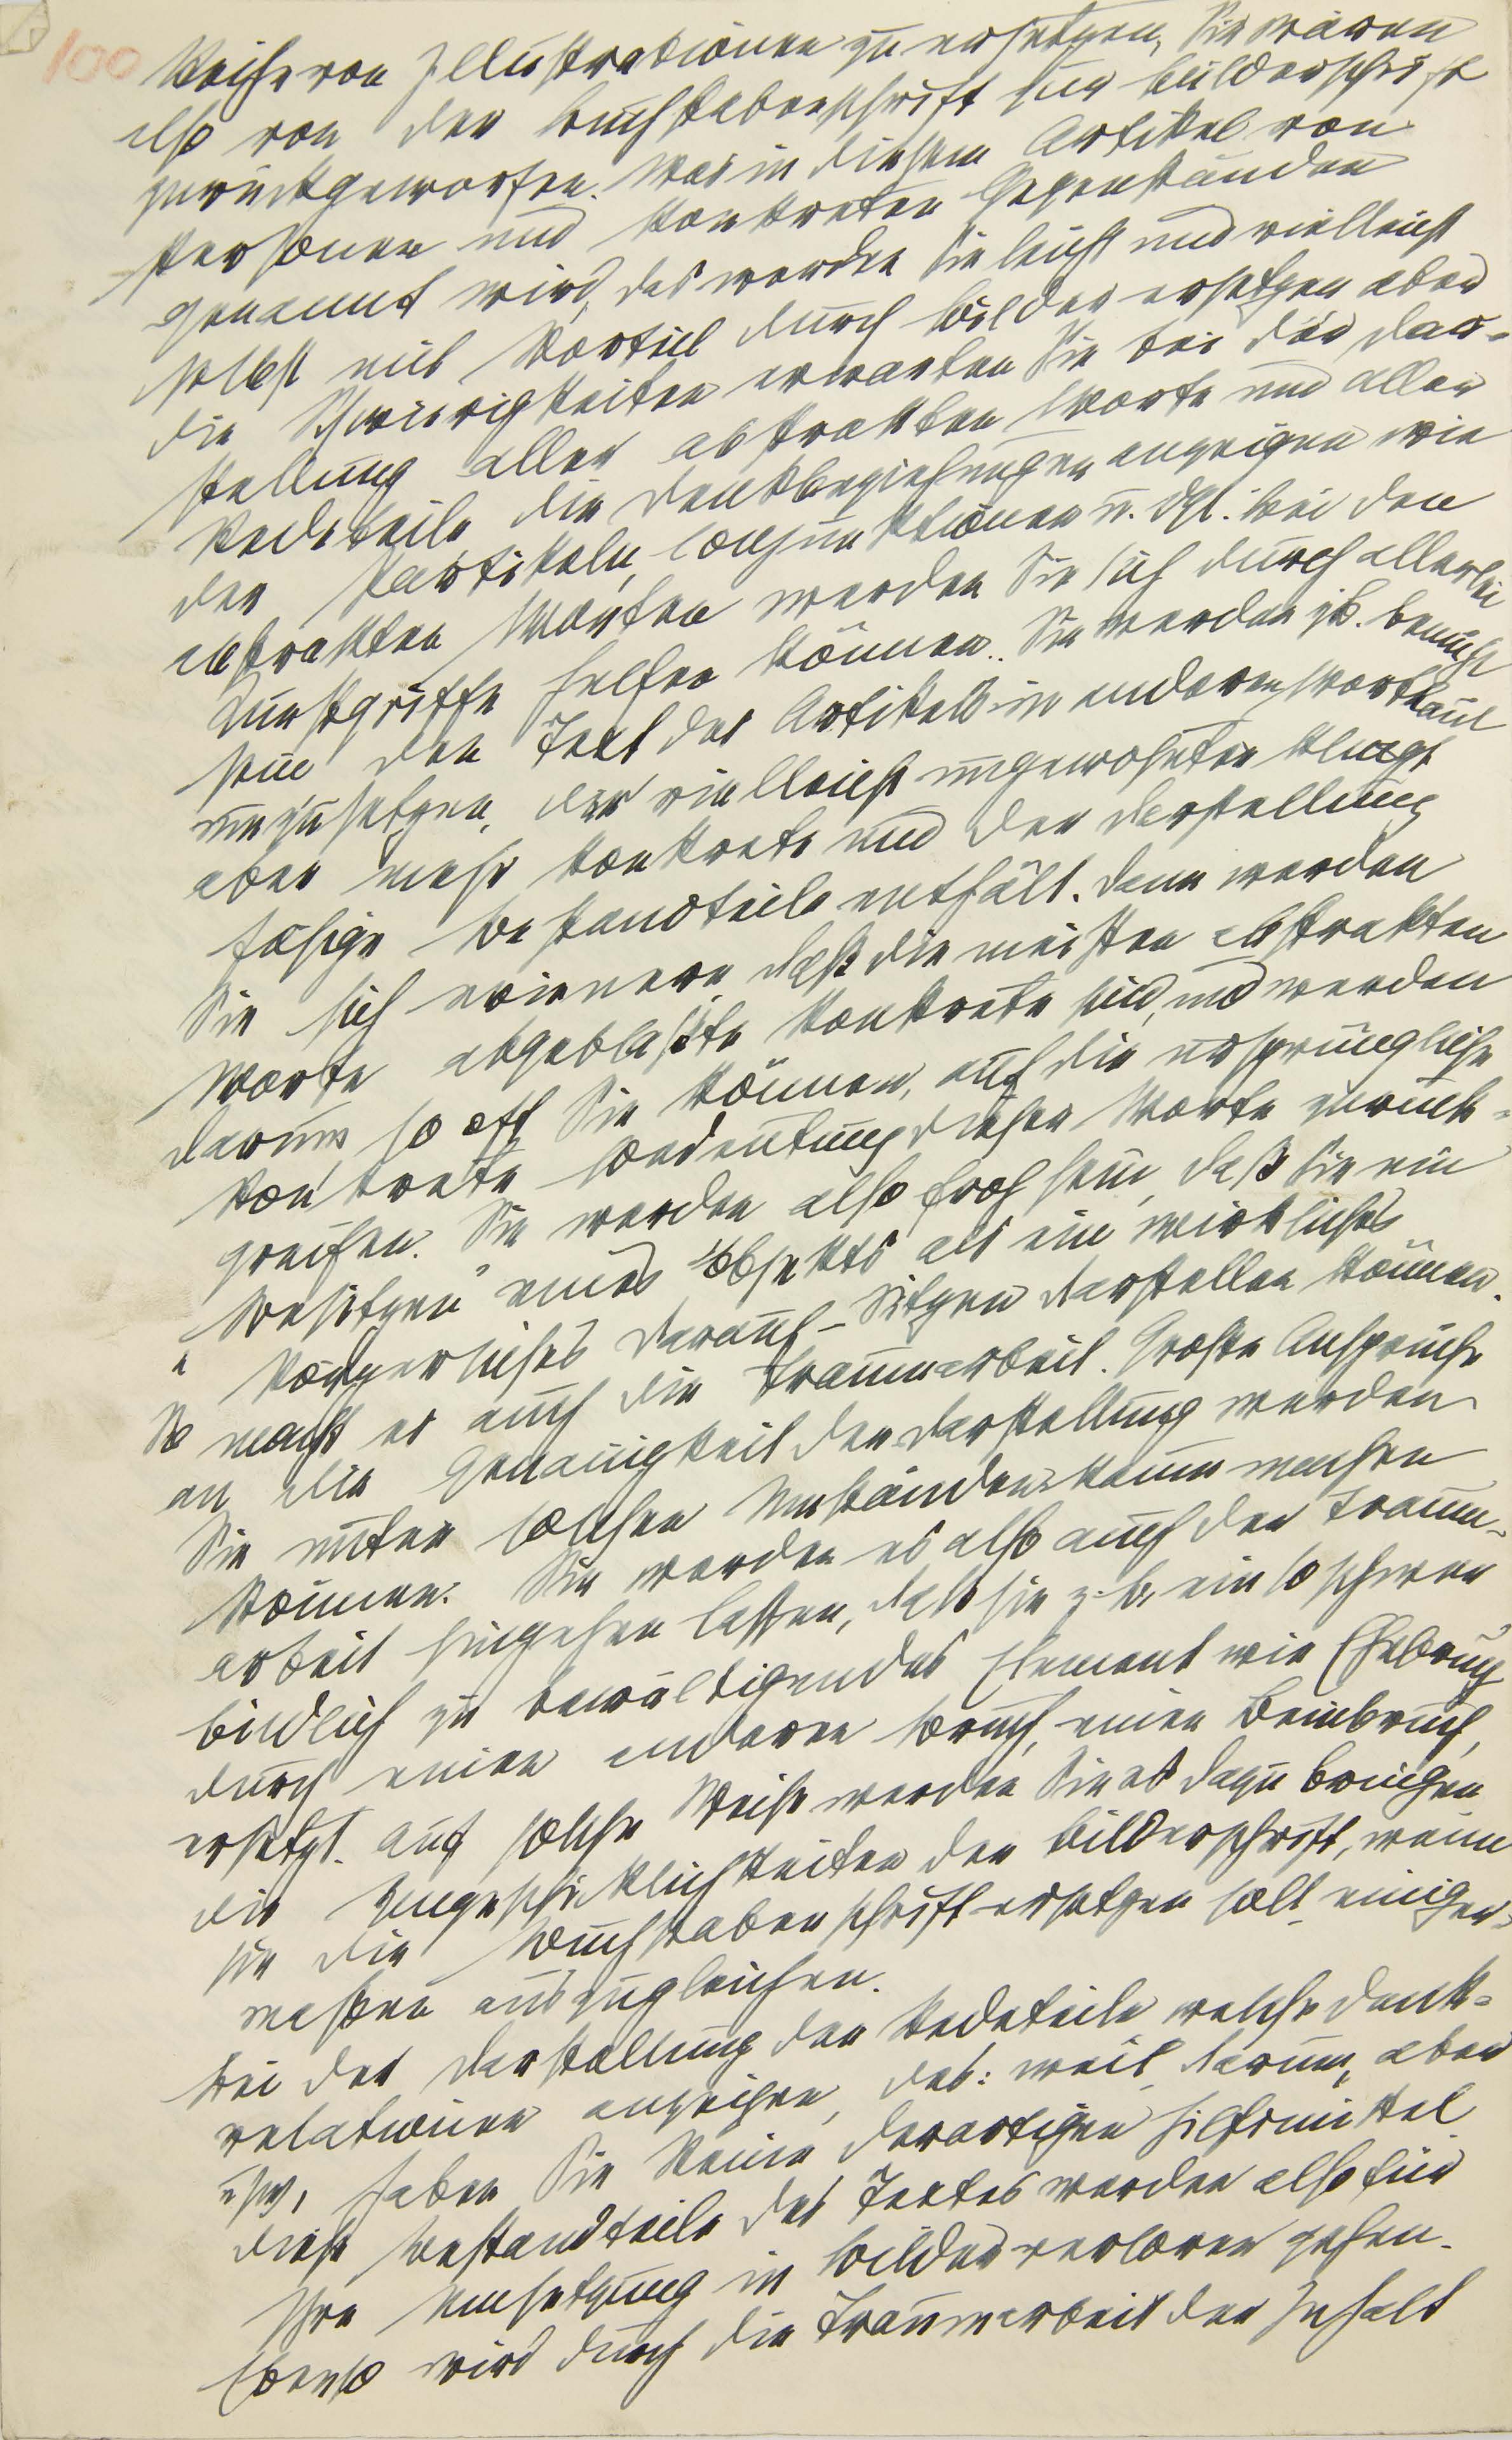 100
Reihe von Illustrationen zu ersetzen, Sie wären
also von der Buchstabenschrift zur Bilderschrift
zurückgeworfen. Was in diesem Artikel von
Personen und konkreten Gegenständen
genannt wird, das werden Sie leicht und vielleicht
selbst mit Vorteil durch Bilder ersetzen aber
die Schwierigkeiten erwarten Sie bei der Dar-
stellung aller abstrakten Worte und aller
Redeteile die Denkbeziehungen anzeigen wie
der Partikeln, Conjunktionen u. dgl. Bei den
abstrakten Worten werden Sie sich durch allerlei
Kunstgriffe helfen können. Sie werden zB. bemüht
sein, den Text des Artikels in anderen Wortlaut
umzusetzen, der vielleicht ungewohnter klingt
aber mehr konkrete und der Darstellung
fähige Bestandteile enthält. Dann werden
Sie sich erinnern daß die meisten abstrakten
Worte abgeblaßte konkrete sind, und werden
darum, so oft Sie können, auf die ursprüngliche
konkrete Bedeutung dieser Worte zurück-
greifen. Sie werden also froh sein, daß Sie ein
"Besitzen" eines Objekts als ein wirkliches
körperliches Darauf-Sitzen darstellen können.
So macht es auch die Traumarbeit. Große Ansprüche
an die Genauigkeit der Darstellung werden
Sie unter solchen Umständen kaum machen
können. Sie werden es also auch der Traum-
arbeit hingehen lassen, daß sie z.b. ein so schwer
bildlich zu bewältigendes Element wie Ehebruch
durch einen anderen Bruch, einen Beinbruch,
ersetzt. Auf solche Weise werden Sie es dazu bringen
die Ungeschicklichkeiten der Bilderschrift, wenn
sie die Buchstabenschrift ersetzen soll, einiger-
maßen auszugleichen.
Bei der Darstellung der Redeteile welche Denk-
relationen anzeigen, des: weil, darum, aber
usw, haben Sie keine derartigen Hilfsmittel
diese Bestandteile des Textes werden also für
Ihre Umsetzung in Bilder verloren gehen.
Ebenso wird durch die Traumarbeit der Inhalt